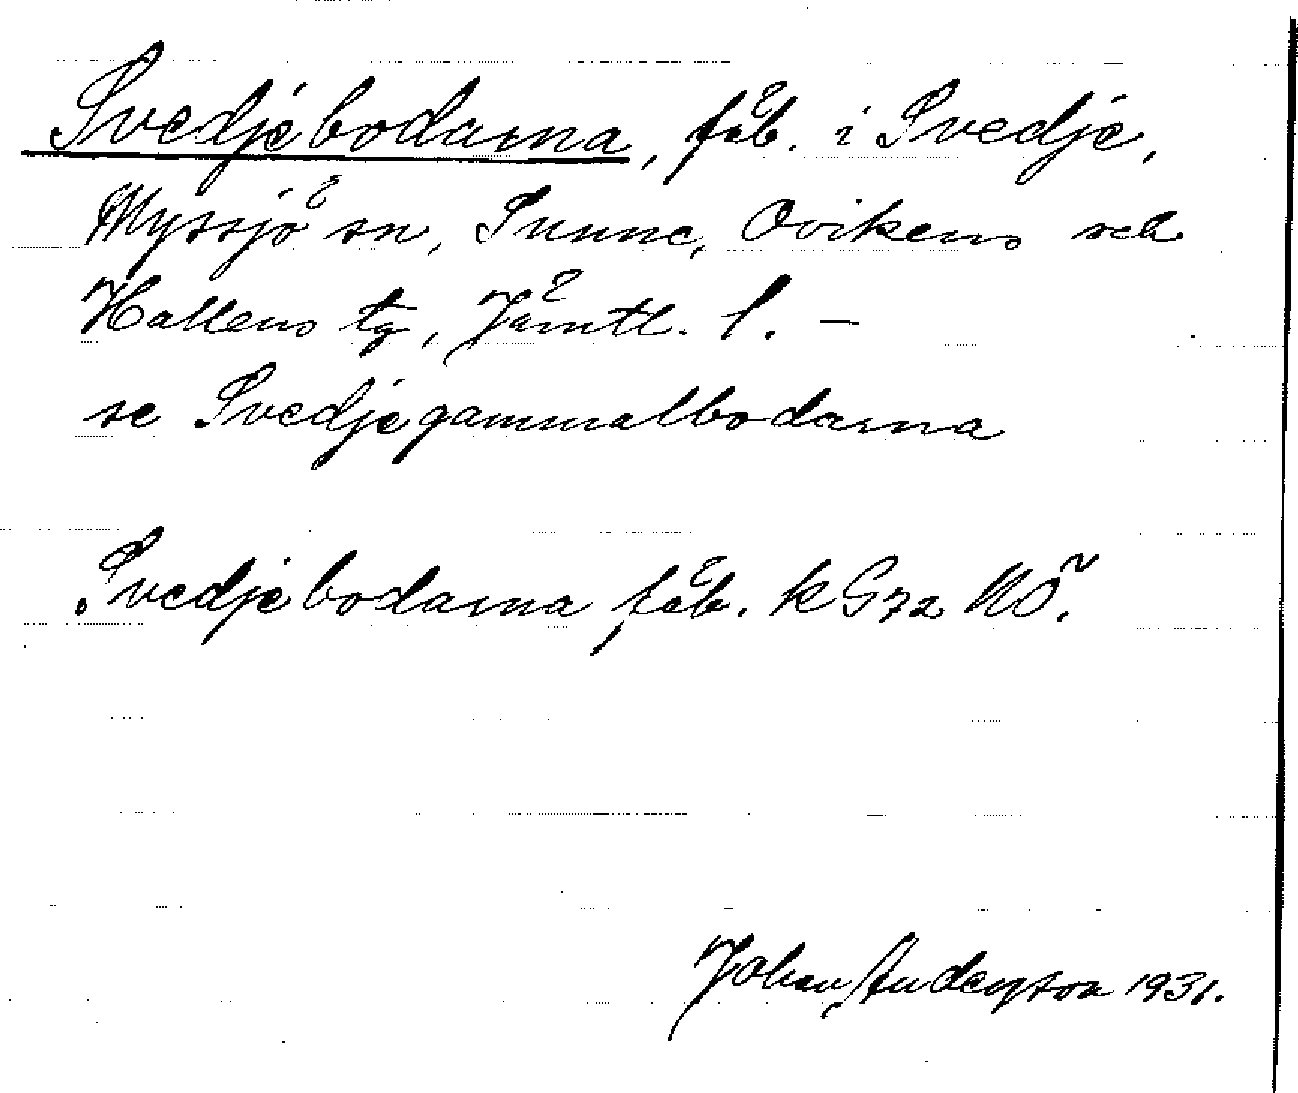 Svedjebodarna, fäb. i Svedje,
Myssjö sn, Sunne, Ovikens och
Hallens tg, Jämtl. l. –
se Svedjegammalbodarna
Svedjebodarna fäb. k G72 NÖ.
Johan Andersson 1931.